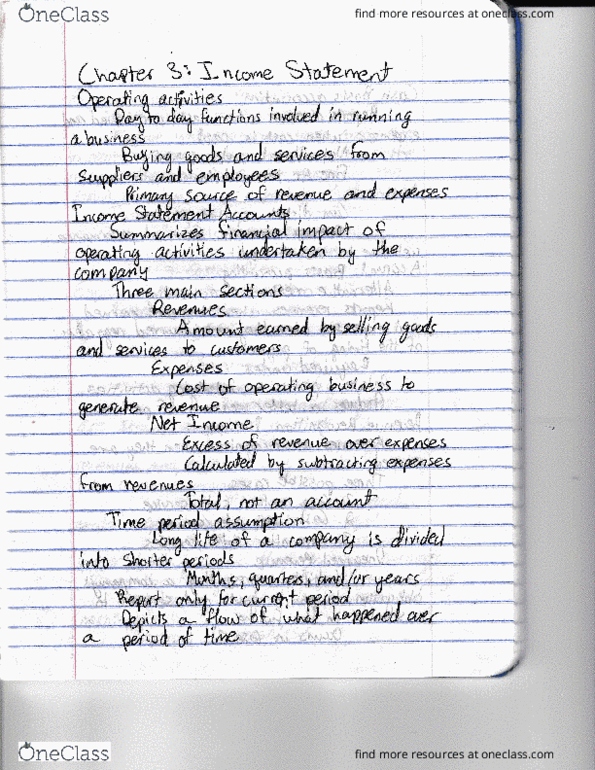 OneClass
find more resources at oneclass.com
Chapter 3: Income Statement
Operating activities
Day to day functions involved in running
a business
Buying goods and services from
suppliers and employees
Primary source of revenue and expenses
Income Statement Accounts
Summarizes financial impact of
operating activities undertaken by the
company
Three main sections
Revenues
Amount earned by selling goods
and services to customers
Expenses
Cost of operating business to
generate revenue
Net Income
Excess of revenue over expenses
Calculated by subtracting expenses
from revenues
Total, not an account
Time period assumption
Long life of a company is divided
into shorter periods
Months, quarters, and/or years
Report only for current period
Depicts a flow of what happened over
a period of time
OneClass
find more resources at oneclass.com